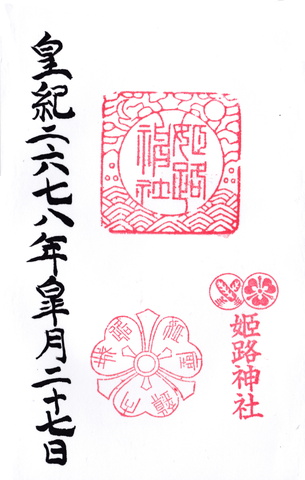 姫路神社
姫路
神社
皇紀二六七八年皐月二十七日